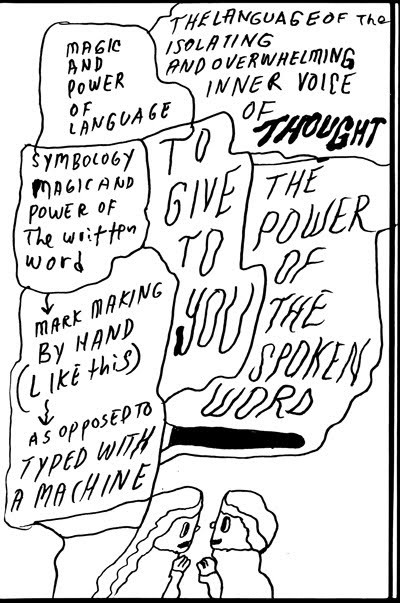 MAGIC
AND
POWER
OF
LANGUAGE
THE LANGUAGE OF THE
ISOLATING
AND OVERWHELMING
INNER VOICE
OF
THOUGHT
SYMBOLOGY
MAGIC AND
POWER OF
The written
word
MARK MAKING
BY HAND
(LIKE this)
AS OPPOSED TO
TYPED WITH
A MACHINE
TO
GIVE
TO
YOU
THE
POWER
OF
THE
SPOKEN
WORD